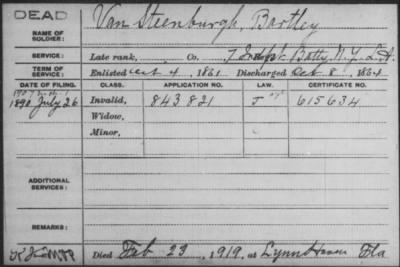 DEAD
NAME OF SOLDIER: Van Steenburgh, Bartley
SERVICE: Late rank, Co. 7 Indpt. Batty. N.Y. L.A.
TERM OF SERVICE: Enlisted 4, 1861 Discharged Oct 8, 1864
DATE OF FILING. CLASS. APPLICATION NO. LAW. CERTIFICATE NO.
1890 July 26 Invalid, 843821 J 615634
Widow,
Minor,
ADDITIONAL SERVICES:
REMARKS:
Died Feb 23, 1919, at Lynn Haven Fla